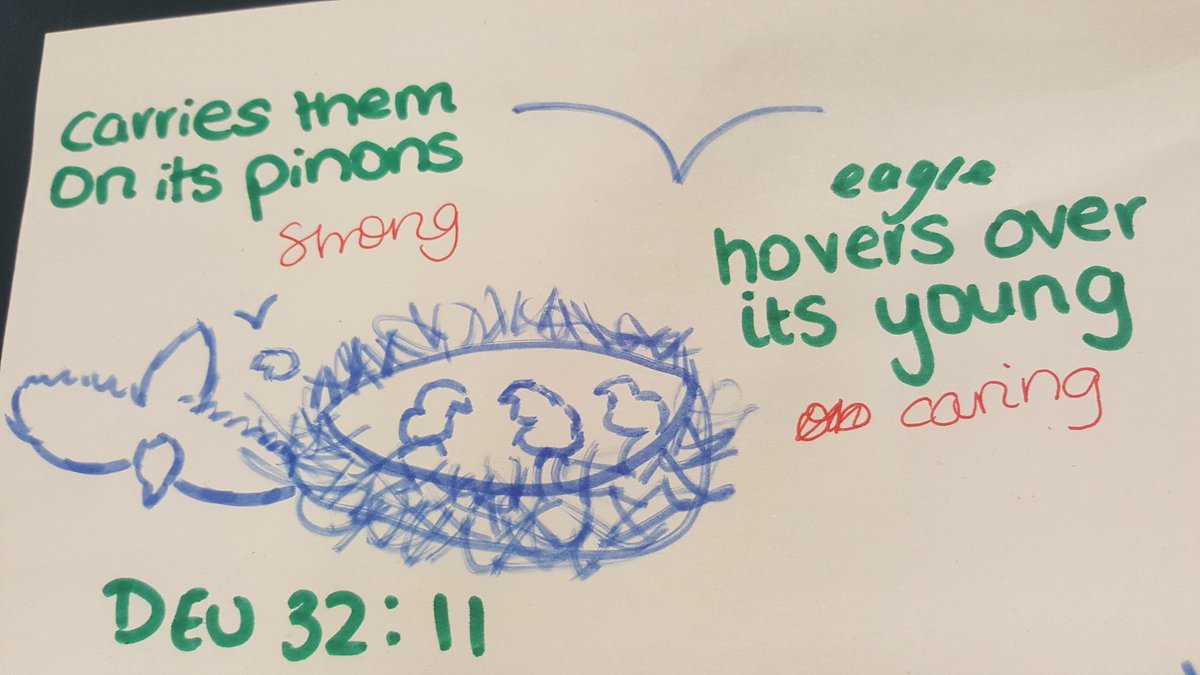 carries them
on its pinons
strong
eagle
hovers over
its young
caring
DEU 32:11